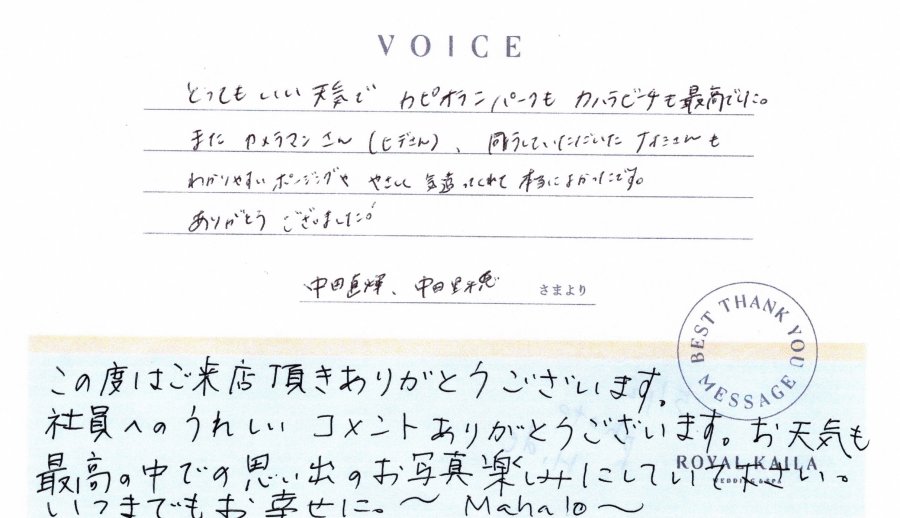 VOICE
とってもいい天気で カピオラニパークも カハラビーチも最高でした。
また カメラマンさん(ヒデさん)、同行していただいた ナオミさんも
わかりやすい ポージングや やさしく 気遣ってくれて 本当によかったです。
ありがとう ございました!
中田 中田 さまより
BEST THANK YOU MESSAGE
この度はご来店頂きありがとうございます。
社員へのうれしい コメントありがとうございます。お天気も
最高の中での思い出のお写真楽しみにしていて下さい。
ROYAL KAILA
WEDDING & SPA
いつまでもお幸せに。〜 Mahalo〜